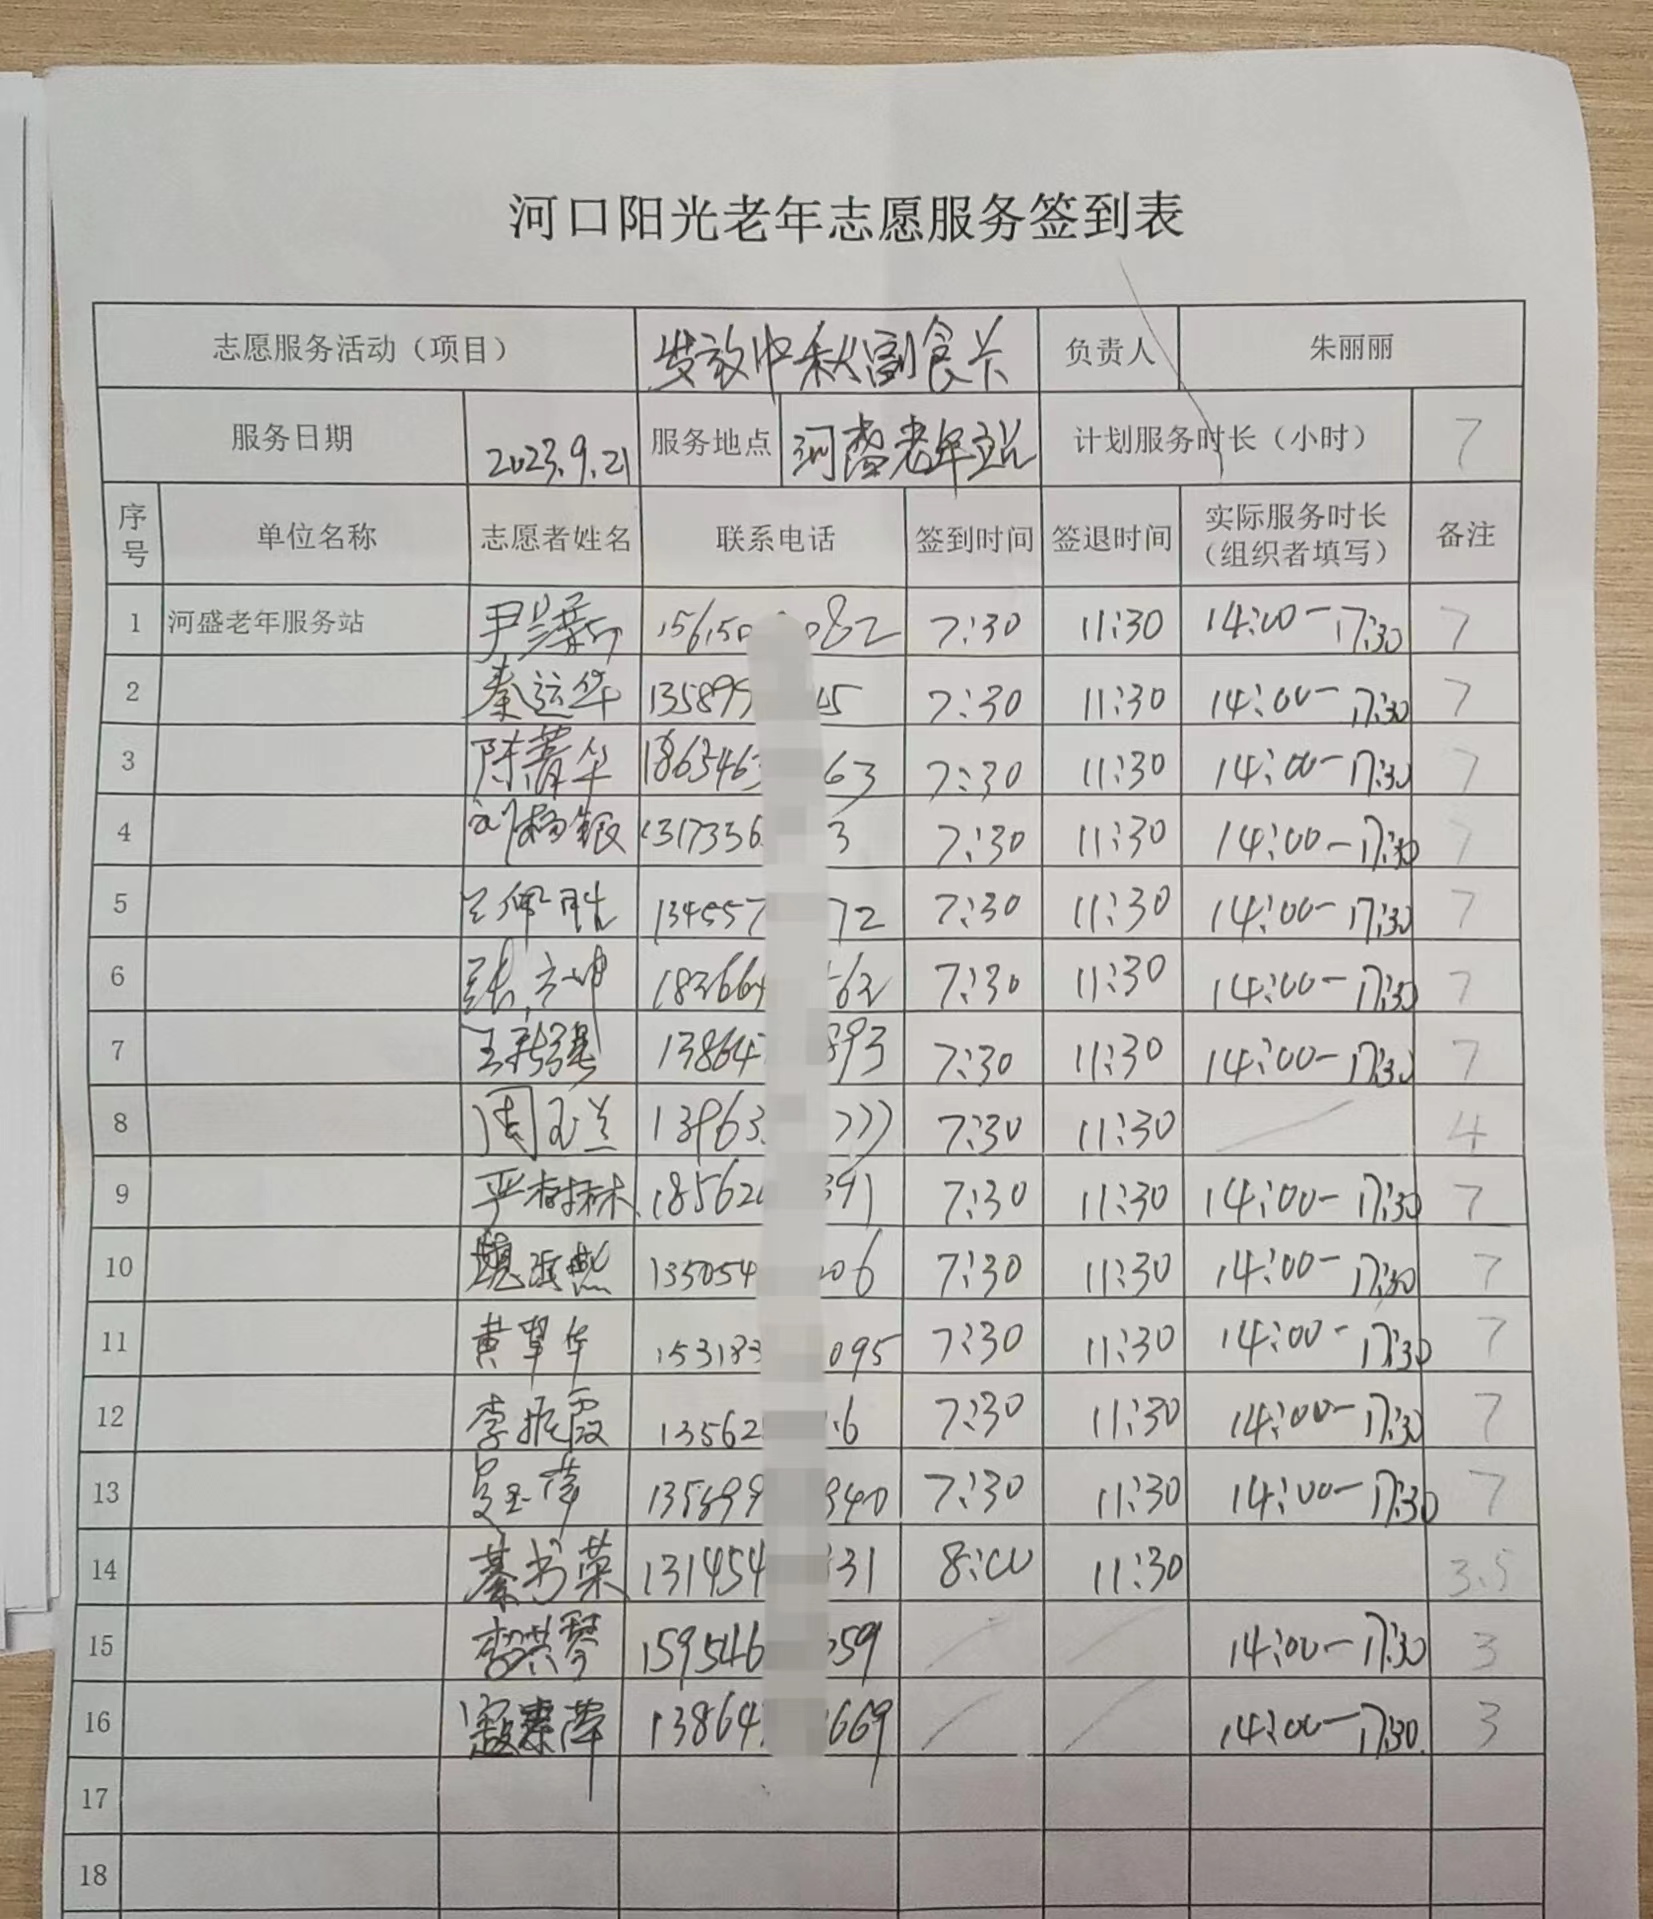 河口阳光老年志愿服务签到表
志愿服务活动（项目） 发放中秋副食卡 负责人 朱丽丽
服务日期 2023.9.21 服务地点 河盛老年站 计划服务时长（小时） 7
序号 单位名称 志愿者姓名 联系电话 签到时间 签退时间 实际服务时长（组织者填写） 备注
1 河盛老年服务站 7:30 11:30 14:00-17:30 7
2 秦运华 13589 7:30 11:30 14:00-17:30 7
3 陈菁华 1863463 63 7:30 11:30 14:00-17:30 7
4 刘杨银 1317336 3 7:30 11:30 14:00-17:30 7
5 134557 72 7:30 11:30 14:00-17:30 7
6 18366 62 7:30 11:30 14:00-17:30 7
7 王新强 13864 893 7:30 11:30 14:00-17:30 7
8 周玉兰 13963 777 7:30 11:30 4
9 严树林 18562 391 7:30 11:30 14:00-17:30 7
10 135054 06 7:30 11:30 14:00-17:30 7
11 黄翠华 153183 095 7:30 11:30 14:00-17:30 7
12 李振霞 13562 6 7:30 11:30 14:00-17:30 7
13 135899 940 7:30 11:30 14:00-17:30 7
14 綦书荣 131454 31 8:00 11:30 3.5
15 李洪琴 159546 059 14:00-17:30 3
16 寇素萍 13864 669 14:00-17:30 3
17
18